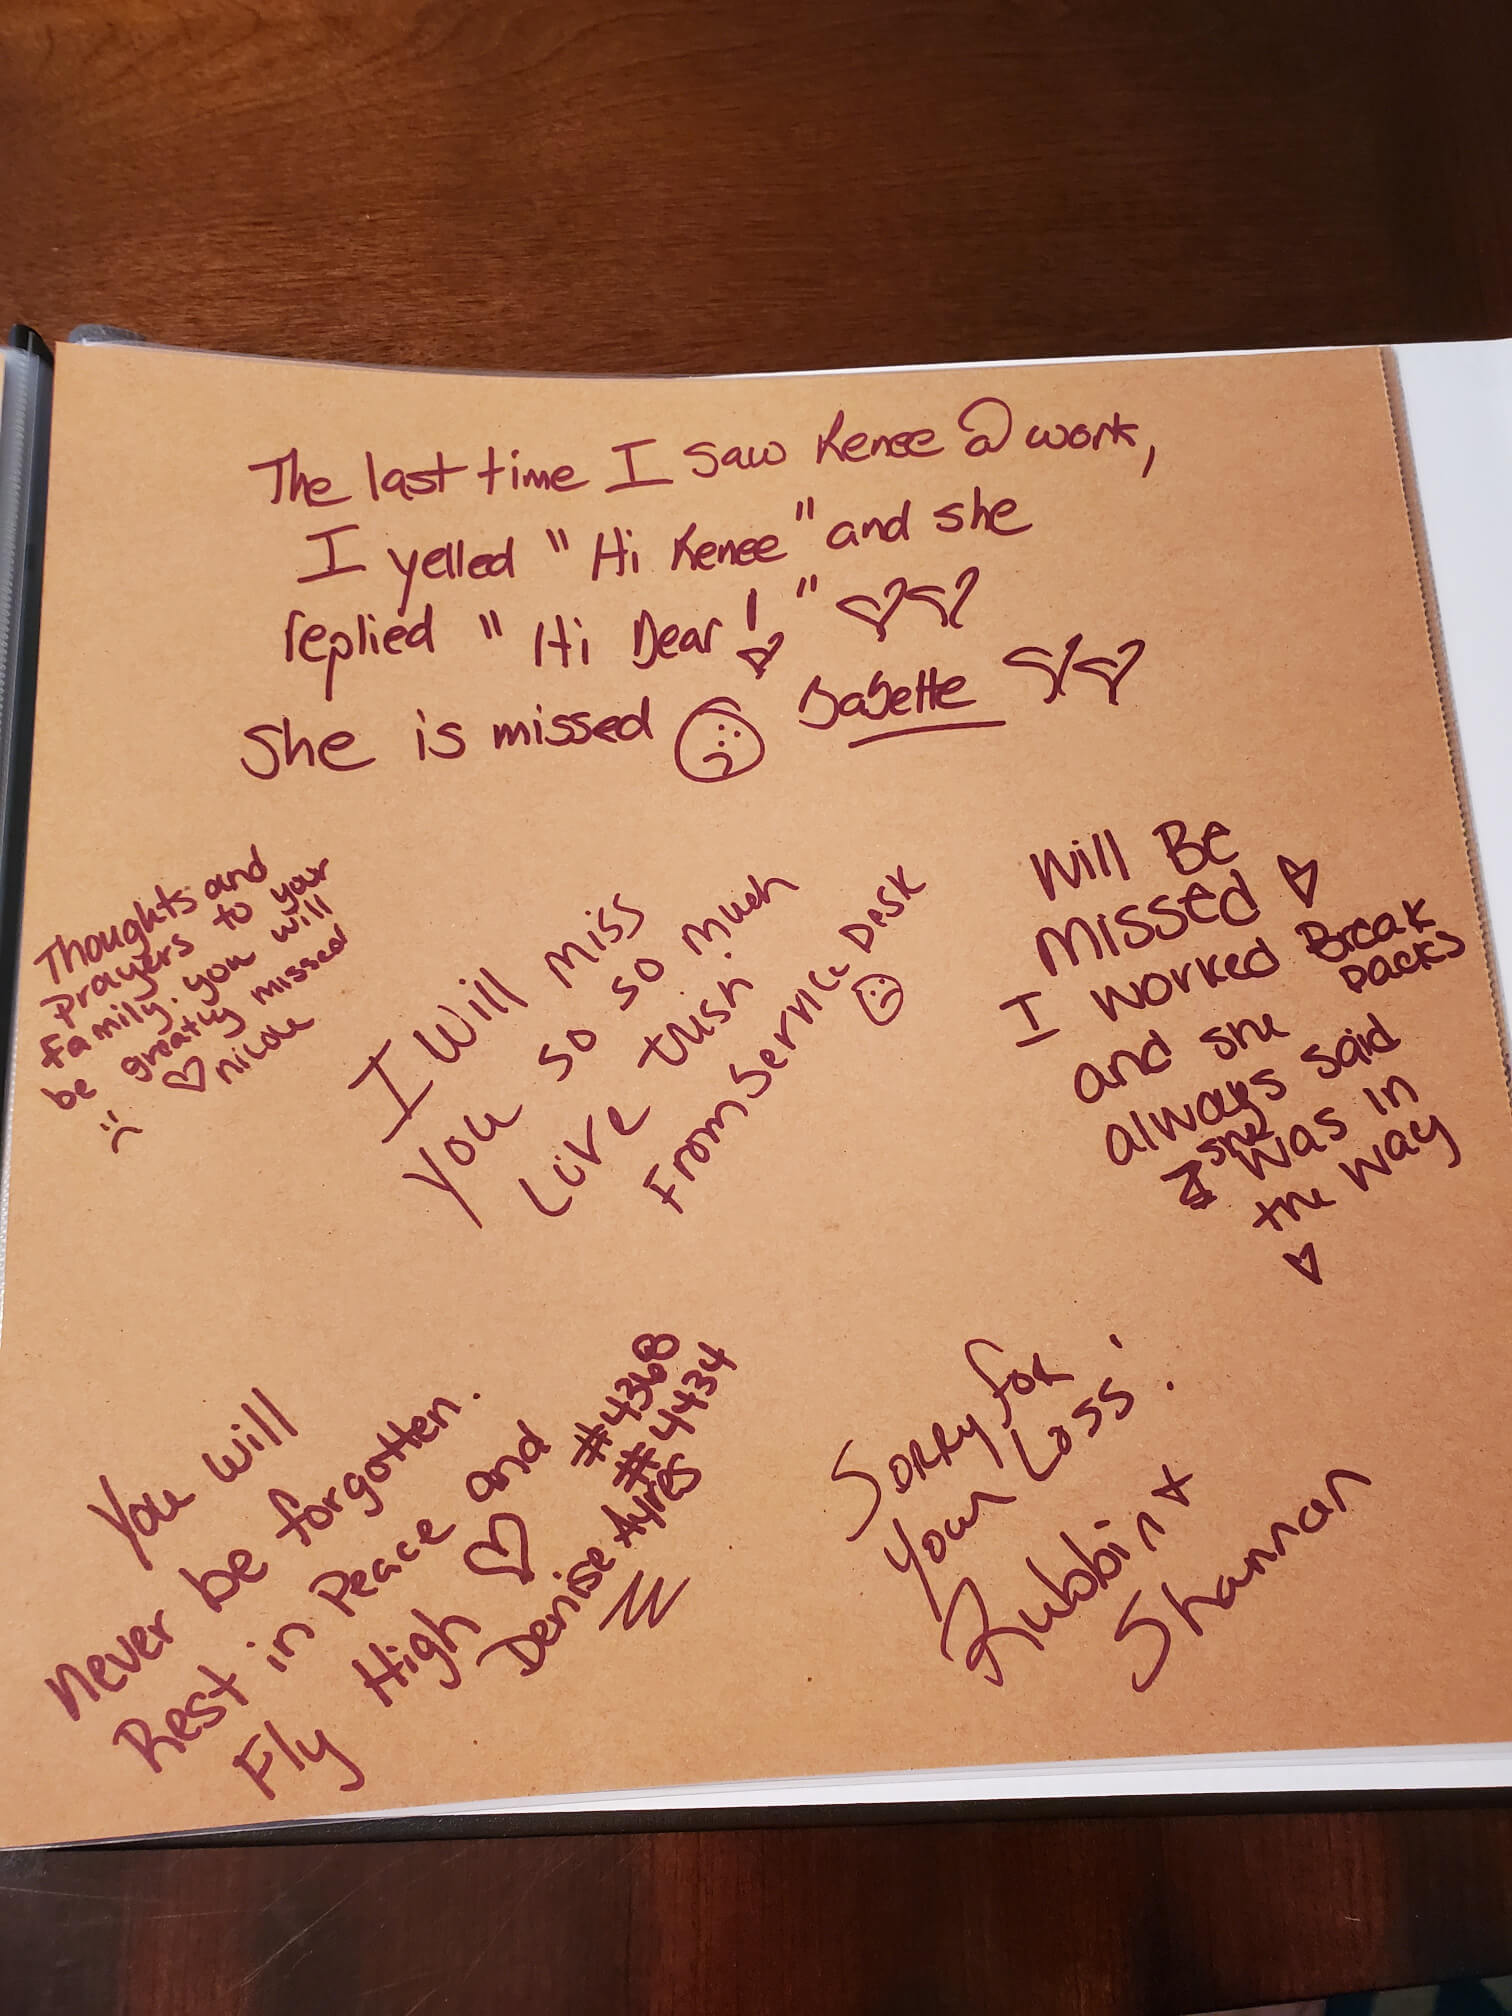 The last time I saw Renee @ work,
I yelled "Hi Renee" and she
replied "Hi Dear!"
She is missed Babette
Thoughts and
prayers to your
family. you will
be greatly missed
nicole
I will miss
you so so much
Love Trish
From Service Desk
Will Be
Missed
I worked Break
packs
and she
always said
she was in
the way
You will
never be forgotten.
Rest in Peace and
Fly High
#4368
#4434
Denise Ayres
Sorry for
your Loss!
Rubbin +
Shannan